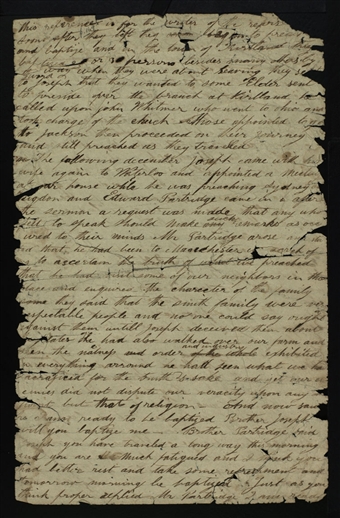 this reference is for the
Soon after they left they
and baptize and in the town of Kirtland they
baptized persons besides
word when they were about leaving they
to Joseph that they wanted to some Elder sent
to preside over the branch at Kirtland
called upon John Whitmer who went to ohio and
took charge of the church those appointed to go
to Jackson then proceeded on their journey
and still preached as they traveled
The following december Joseph came with his
wife again to Waterloo and appointed a meeting
at our house while he was preaching Sydney
Rigdon and Edward Partridge came in after
the sermon a request was made that any who
felt to speak should make any remarks as
to their minds Mr Partridge arose and
that he had been to Manchester
to ascertain the truth of what we preached
that he had seen some of our neighbors in that
place and enquired the character of the family
some they said that the smith family were
respectable people and no one could say ought
against them untill Joseph deceived them about
he had also walked over our farm and
seen the neatness and order and industry exhibited
in everything arround he had seen what we had
sacraficed for the truth sake and yet our
enemies did not dispute our veracity upon any
point but that of religion And now said
I am ready to be baptized Brother Joseph
will you baptize me Brother Partridge said
Joseph you have traveled a long way this morning
and you are much fatigued and I think you
had better rest and take some refreshment and
tomorrow morning be baptized Just as you
think proper replied Mr Partridge I am